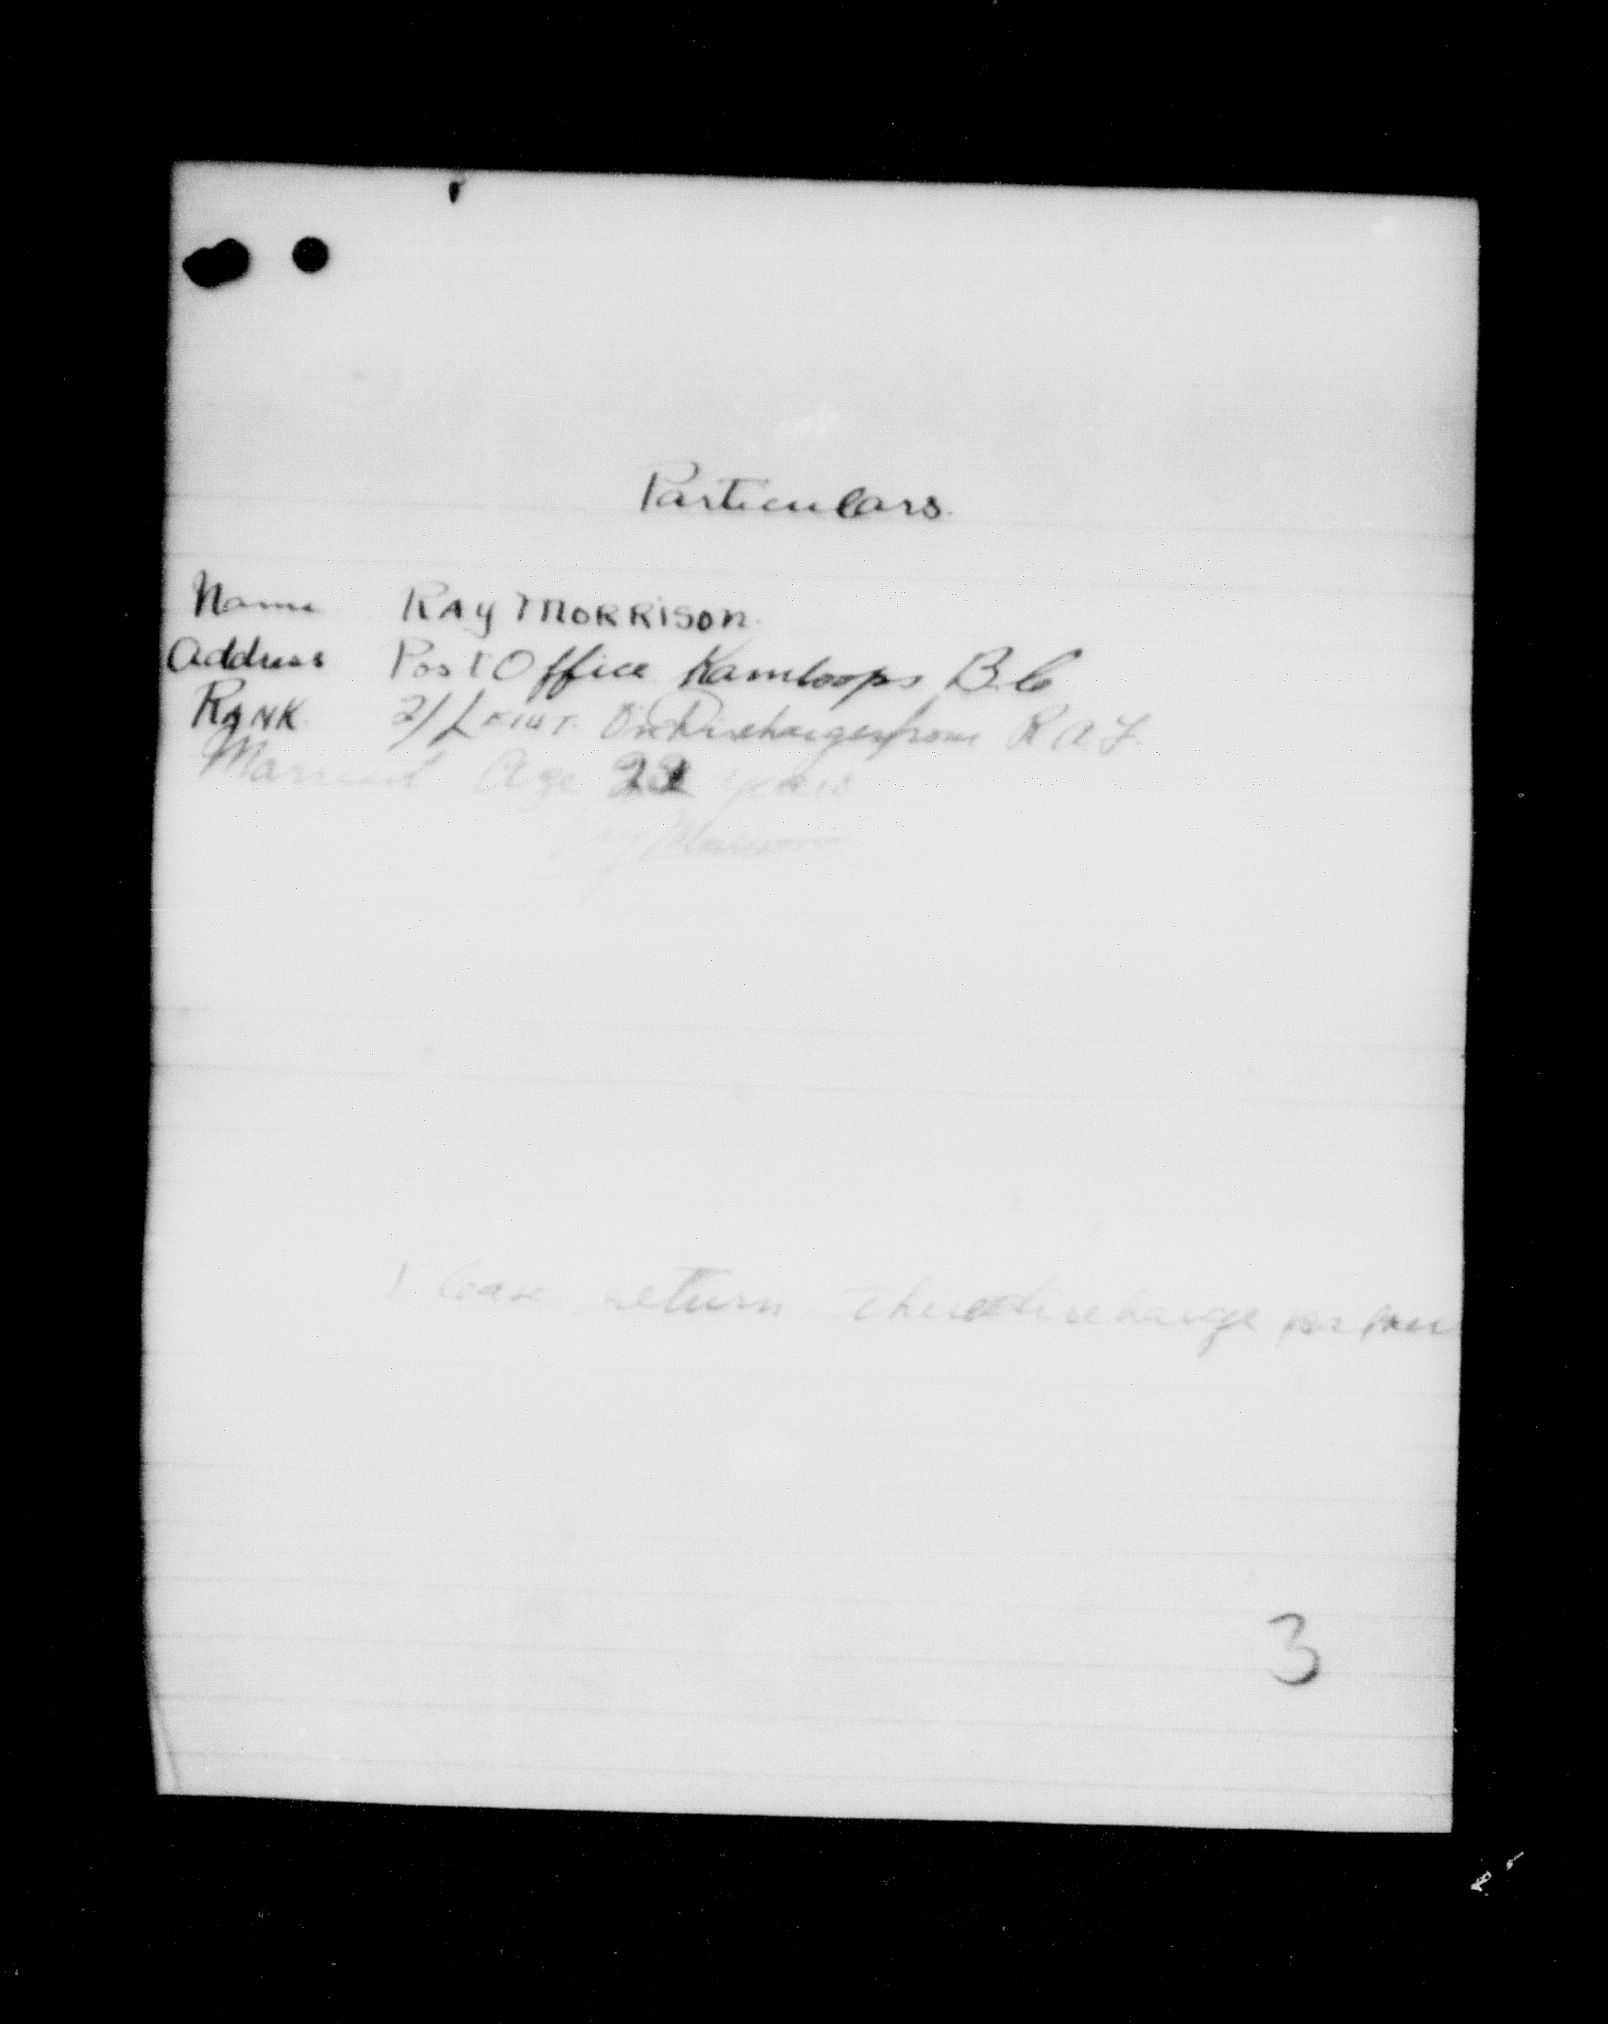 Particulars.
Name Ray Morrison.
Address Post Office Kamloops B.C
Rank 2/Lieut. On Discharge from R.A.F.
Married Age years
Ray Morrison
Please return discharge
3